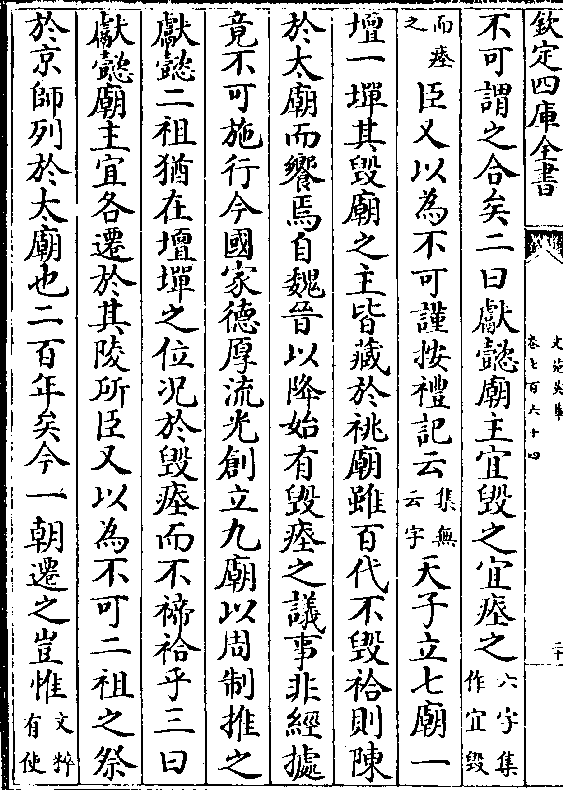 欽定四庫全書
文苑英華
卷七百六十四
二十
不可謂之合矣二曰獻懿廟主宜毀之宜瘞之六字集作宜毀
而瘞之臣又以為不可謹按禮記云集無云字天子立七廟一
壇一墠其毀廟之主皆藏於祧廟雖百代不毀祫則陳
於太廟而饗焉自魏晉以降始有毀瘞之議事非經據
竟不可施行今國家德厚流光創立九廟以周制推之
獻懿二祖猶在壇墠之位況於毀瘞而不禘祫乎三曰
獻懿廟主宜各遷於其陵所臣又以為不可二祖之祭
於京師列於太廟也二百年矣今一朝遷之豈惟文粹有使